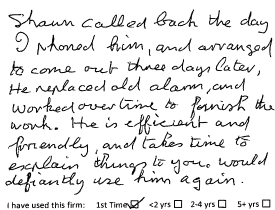 Shaun called back the day
I phoned him, and arranged
to come out three days later,
He replaced old alarm, and
worked over time to finish the
work. He is efficient and
friendly, and takes time to
explain things to you. would
defiantly use him again.
I have used this firm: 1st Time ☑ <2 yrs ☐ 2-4 yrs ☐ 5+ yrs ☐